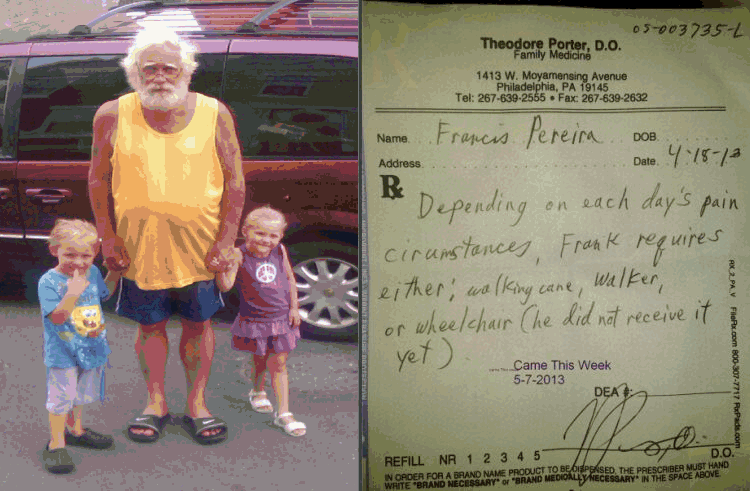 05-003735-L
Theodore Porter, D.O.
Family Medicine
1413 W. Moyamensing Avenue
Philadelphia, PA 19145
Tel: 267-639-2555 • Fax: 267-639-2632
Name Francis Pereira DOB
Address Date 4-18-13
Rx
Depending on each day's pain
circumstances, Frank requires
either; walking cane, Walker,
or wheelchair (he did not receive it
yet).
Came This Week
5-7-2013
DEA #:
D.O.
REFILL NR 1 2 3 4 5
IN ORDER FOR A BRAND NAME PRODUCT TO BE DISPENSED, THE PRESCRIBER MUST HAND
WRITE "BRAND NECESSARY" or "BRAND MEDICALLY NECESSARY" IN THE SPACE ABOVE.
RX_2_PA_V FileRx.com 800-307-7717 RxPads.com